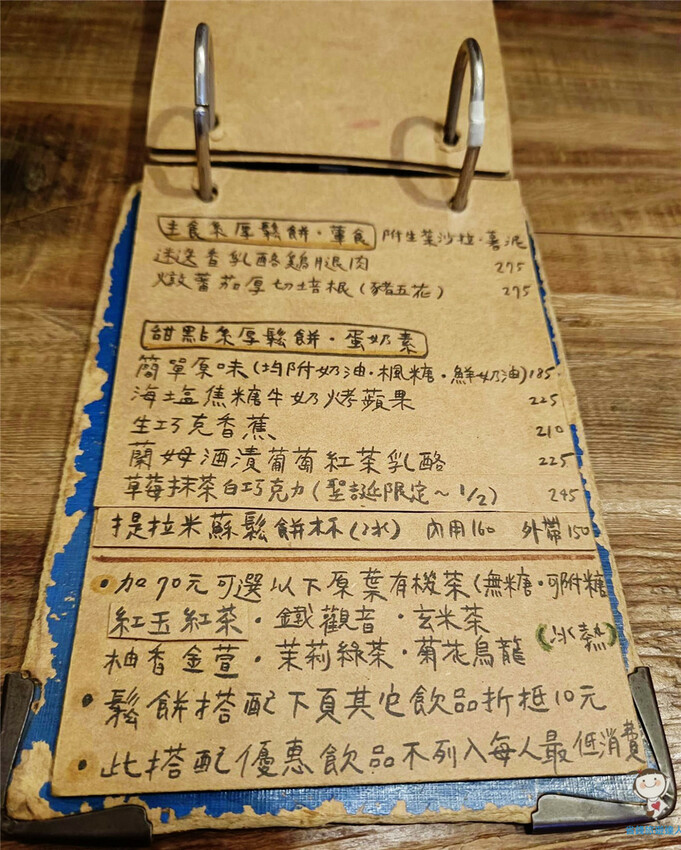 主食系厚鬆餅·葷食 附生菜沙拉·薯泥
迷迭香乳酪雞腿肉 275
燉蕃茄厚切培根(豬五花) 275
甜點系厚鬆餅·蛋奶素
簡單原味(均附奶油·楓糖·鮮奶油) 185
海塩焦糖牛奶烤蘋果 225
生巧克香蕉 210
蘭姆酒漬葡萄紅茶乳酪 225
草莓抹茶白巧克力(聖誕限定~1/2) 245
提拉米蘇鬆餅杯(冰) 內用160 外帶150
•加70元可選以下原葉有機茶(無糖·可附糖
紅玉紅茶·鐵觀音·玄米茶
柚香金萱·茉莉綠茶·菊花烏龍 (冰熱)
•鬆餅搭配下頁其它飲品折抵10元
•此搭配優惠飲品不列入每人最低消費